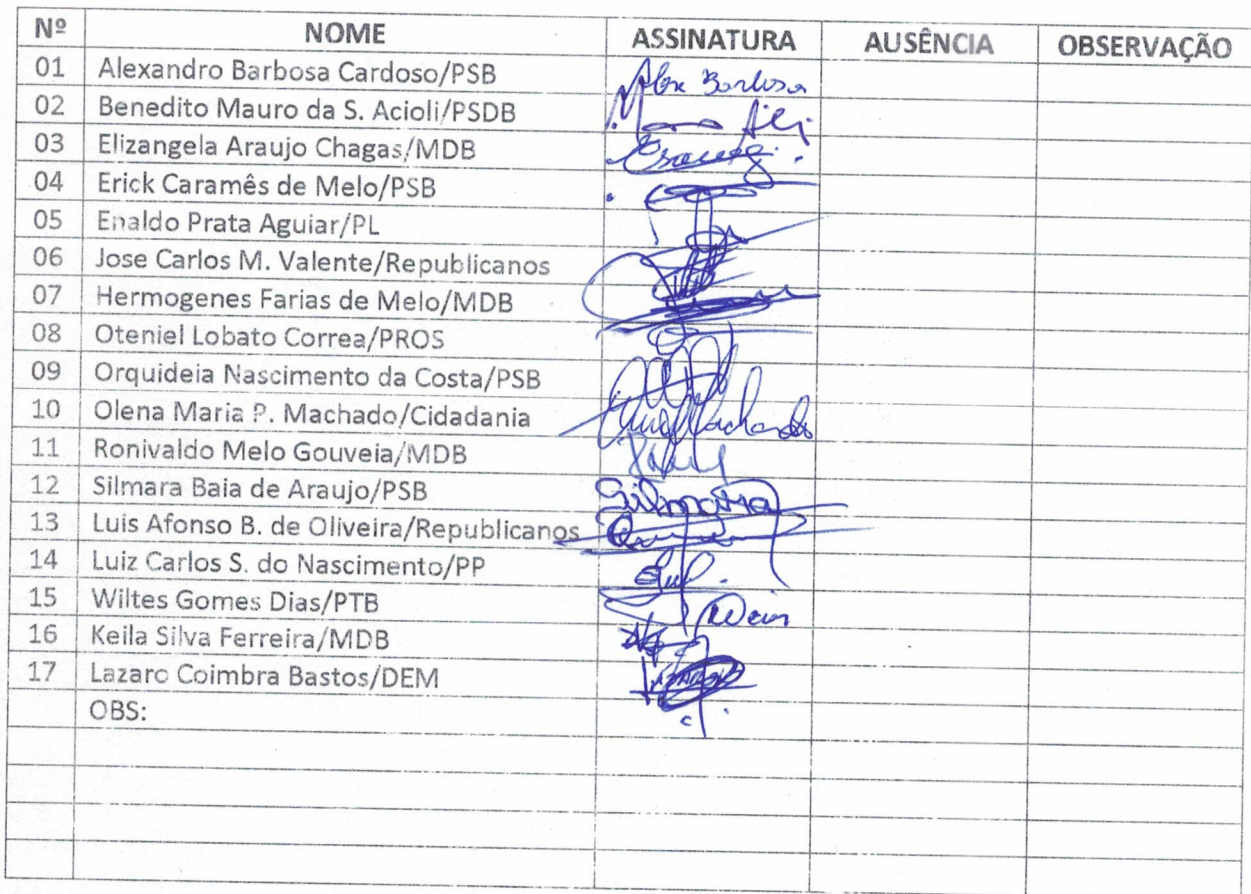 Nº NOME ASSINATURA AUSÊNCIA OBSERVAÇÃO
01 Alexandro Barbosa Cardoso/PSB Alex Barbosa
02 Benedito Mauro da S. Acioli/PSDB
03 Elizangela Araujo Chagas/MDB
04 Erick Caramês de Melo/PSB
05 Enaldo Prata Aguiar/PL
06 Jose Carlos M. Valente/Republicanos
07 Hermogenes Farias de Melo/MDB
08 Oteniel Lobato Correa/PROS
09 Orquideia Nascimento da Costa/PSB
10 Olena Maria P. Machado/Cidadania Machado
11 Ronivaldo Melo Gouveia/MDB
12 Silmara Baia de Araujo/PSB Silmara
13 Luis Afonso B. de Oliveira/Republicanos
14 Luiz Carlos S. do Nascimento/PP
15 Wiltes Gomes Dias/PTB
16 Keila Silva Ferreira/MDB
17 Lazaro Coimbra Bastos/DEM
OBS: